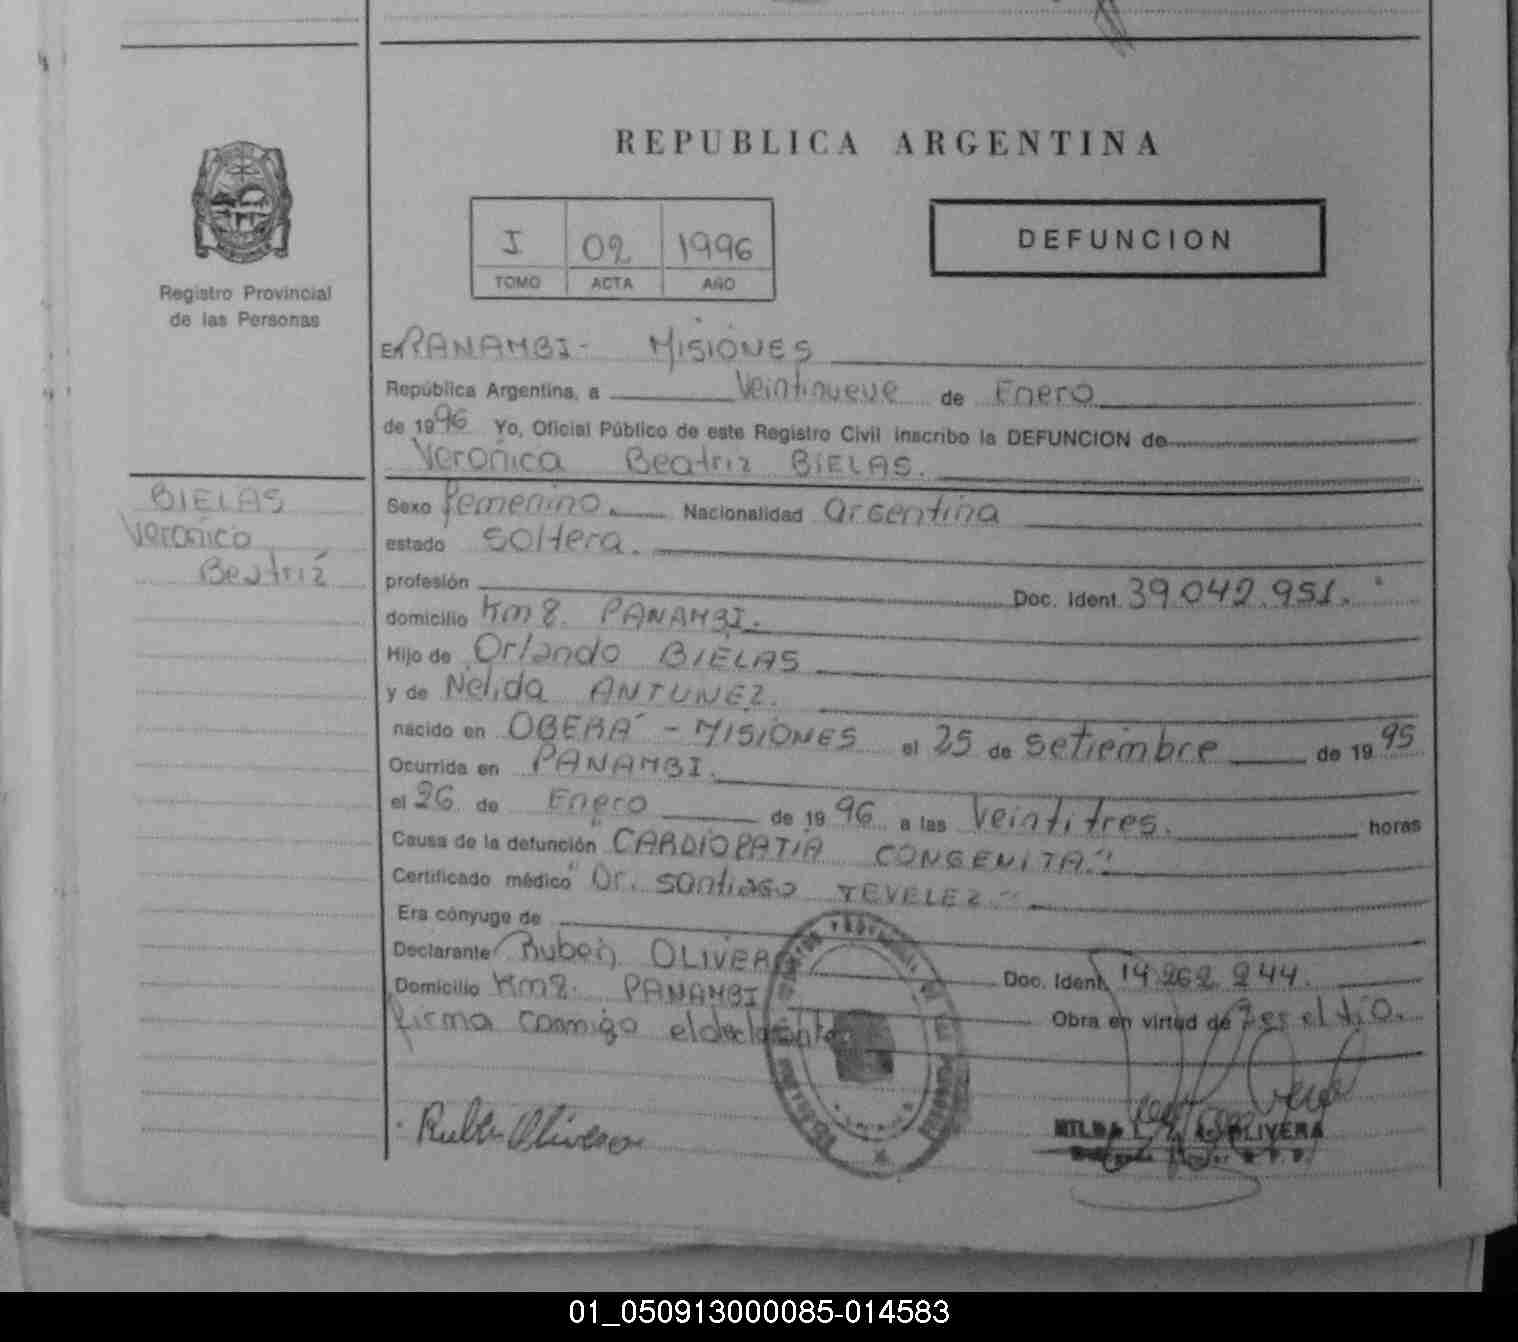 REPUBLICA ARGENTINA
I 02 1996
TOMO ACTA AÑO
DEFUNCION
Registro Provincial
de las Personas
En PANAMBI - MISIONES
República Argentina, a Veintinueve de Enero
de 1996 Yo, Oficial Público de este Registro Civil inscribo la DEFUNCION de
Veronica Beatriz BIELAS.
BIELAS
Veronica
Beatriz
Sexo femenino. Nacionalidad argentina
estado soltera.
profesión Doc. Ident. 39.042.951.
domicilio Km 8. PANAMBI.
Hijo de Orlando BIELAS
y de Nelida ANTUNEZ.
nacido en OBERÁ - MISIONES el 25 de setiembre de 1995
Ocurrida en PANAMBI.
el 26 de Enero de 1996 a las Veintitres. horas
Causa de la defunción "CARDIOPATIA CONGENITA"
Certificado médico "Dr. Santiago TEVELEZ"
Era cónyuge de
Declarante Ruben OLIVERA Doc. Ident. 14.262.244.
Domicilio Km 8. PANAMBI Obra en virtud de ser el tío.
firma conmigo el declarante
Ruben Olivera
OLIVERA
01_050913000085-014583